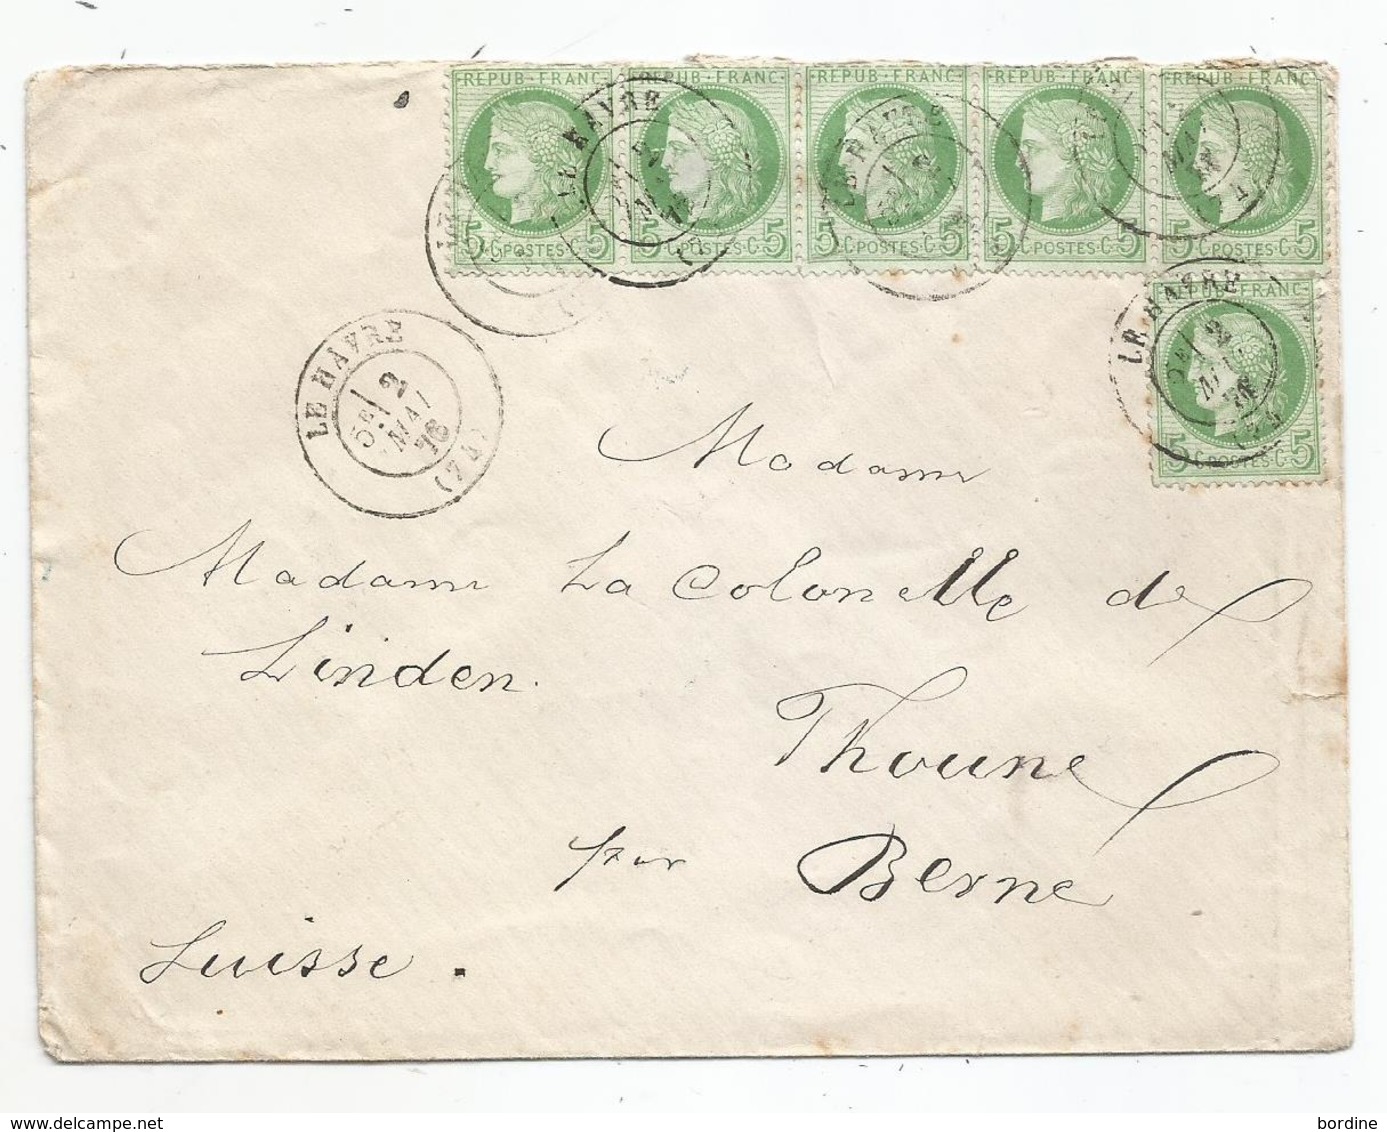 REPUB·FRANC REPUB·FRANC REPUB·FRANC REPUB·FRANC REPUB·FRANC
5·C·POSTES·C·5 5·C·POSTES·C·5 5·C·POSTES·C·5 5·C·POSTES·C·5 5·C·POSTES·C·5
LE HAVRE
LE HAVRE
FRANC
LE HAVRE
5E/ 2
MAI
5 C·POSTES·C·5
LE HAVRE
5E/ 2
MAI
76
(74)
Madame
Madame La Colonelle de
Linden.
Thoune
par Berne
Suisse.
delcampe.net
bordine